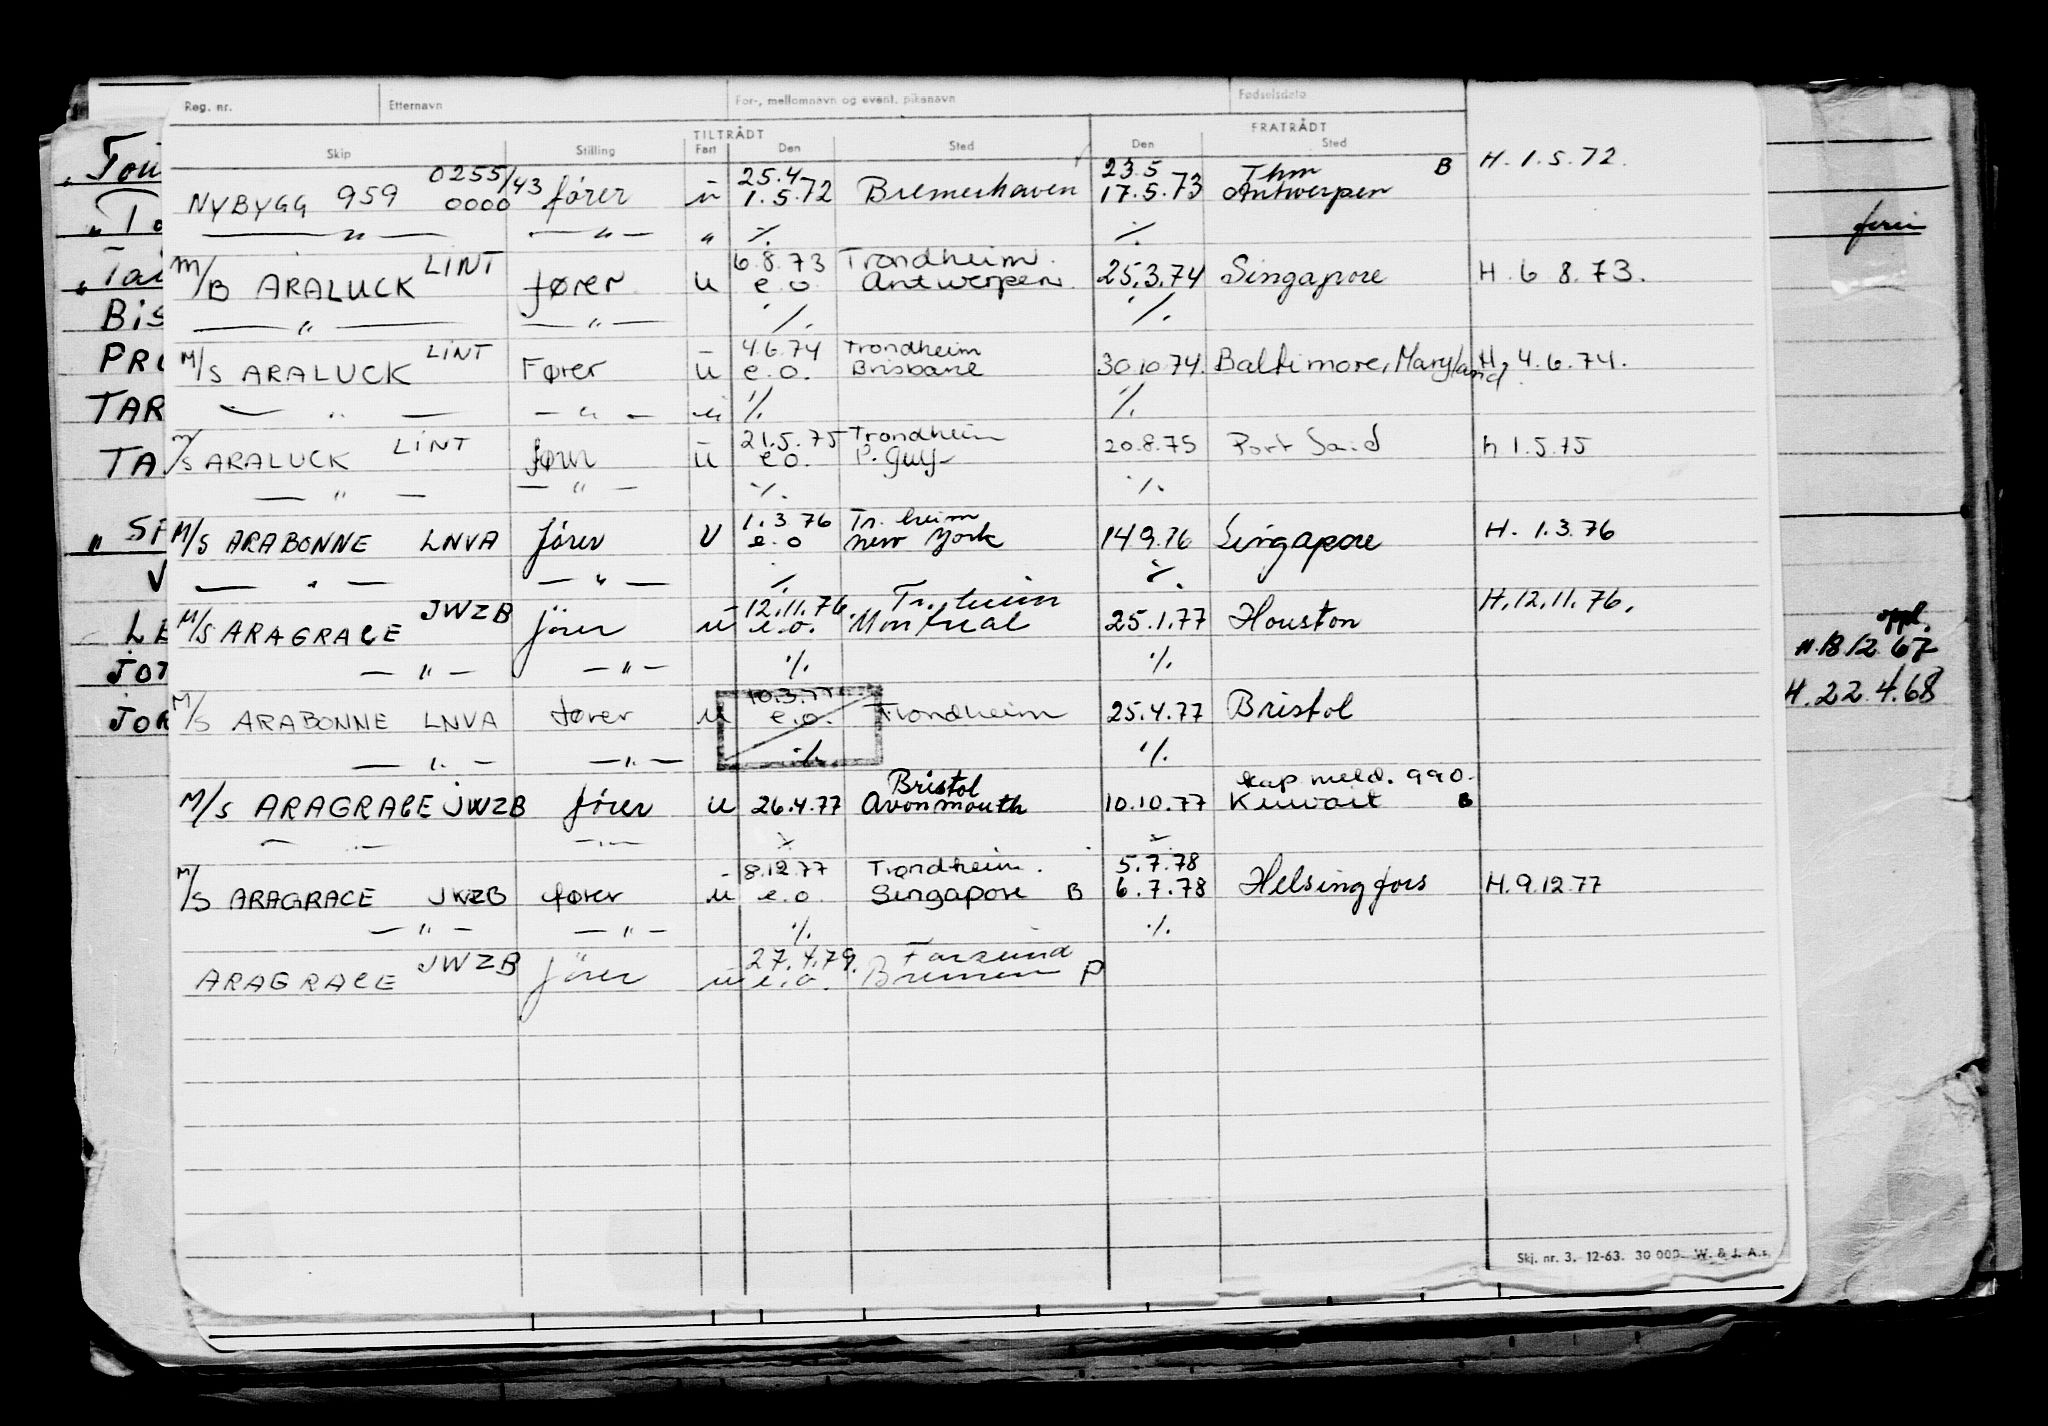 Reg. nr. Etternavn For-, mellomnavn og event. pikenavn Fødselsdato
TILTRÅDT FRATRÅDT
Skip Stilling Fart Den Sted Den Sted
0255/43 25.4 23.5 Thm B H. 1.5.72.
NYBYGG 959 0000 fører u 1.5.72 Bremerhaven 17.5.73 Antwerpen
— " — — " — " ·/. ·/.
LINT 6.8.73 Trondheim.
M/B ARALUCK fører u e.o. Antwerpen. 25.3.74 Singapore H. 6 8.73.
— " — — " — ·/. ·/.
LINT 4.6.74 Trondheim
M/S ARALUCK Fører u e.o. Brisbane 30.10.74. Baltimore, Maryland H. 4.6.74.
— " — — " — " ·/. ·/.
LINT 21.5.75 Trondheim
M/S ARALUCK fører u e.o. P. Gulf 20.8.75 Port Said h 1.5.75
— " — — " — ·/. ·/.
1.3.76 Tr. heim
M/S ARABONNE LNVA fører U e.o New York 14.9.76 Singapore H. 1.3.76
— " — — " — ·/. ·/.
JWZB 12.11.76. Tr. heim H. 12.11.76.
M/S ARAGRACE fører u e.o. Montreal 25.1.77 Houston
— " — — " — ·/. ·/.
10.3.77
M/S ARABONNE LNVA fører u e.o. Trondheim 25.4.77 Bristol
— " — — " — ·/. ·/.
Bristol kap meld. 990.
M/S ARAGRACE JWZB fører u 26.4.77 Avonmouth 10.10.77 Kuwait B
— " — — " — ·/. ·/.
8.12.77 Trondheim. 5.7.78
M/S ARAGRACE JWZB fører u e.o. Singapore B 6.7.78 Helsingfors H. 9.12.77
— " — — " — ·/. ·/.
JWZB 27.4.79. Farsund
ARAGRACE fører u e.o. Bremen P
Skj. nr. 3. 12-63. 30 000. W. & J. A.s.
" Tou
" To
" Tai
Bis
PRO
TAR
TA
V
LE
JOR
oppl.
H. 18 12 67
H. 22.4.68